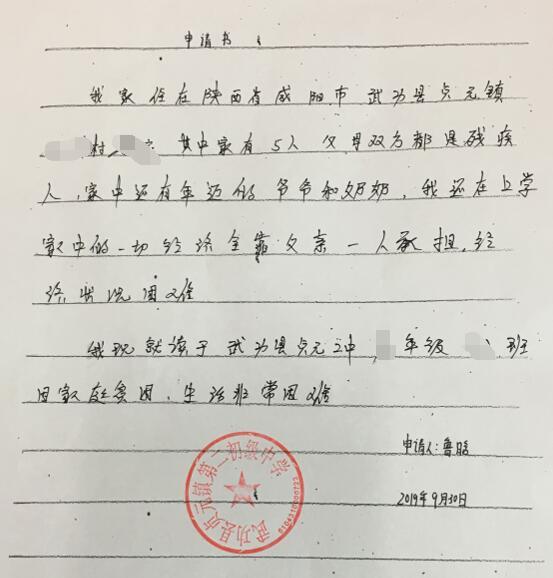 申请书
我家住在陕西省咸阳市 武功县贞元镇
村 其中家有5人 父母双方都是残疾
人,家中还有年迈的爷爷和奶奶,我还在上学
家中的一切经济全靠父亲一人承担,经
济出现困难
我现就读于武功县贞元二中 年级 班
因家庭贫困,生活非常困难
申请人:鲁晗
2019年9月30日
武功县贞元镇第二初级中学